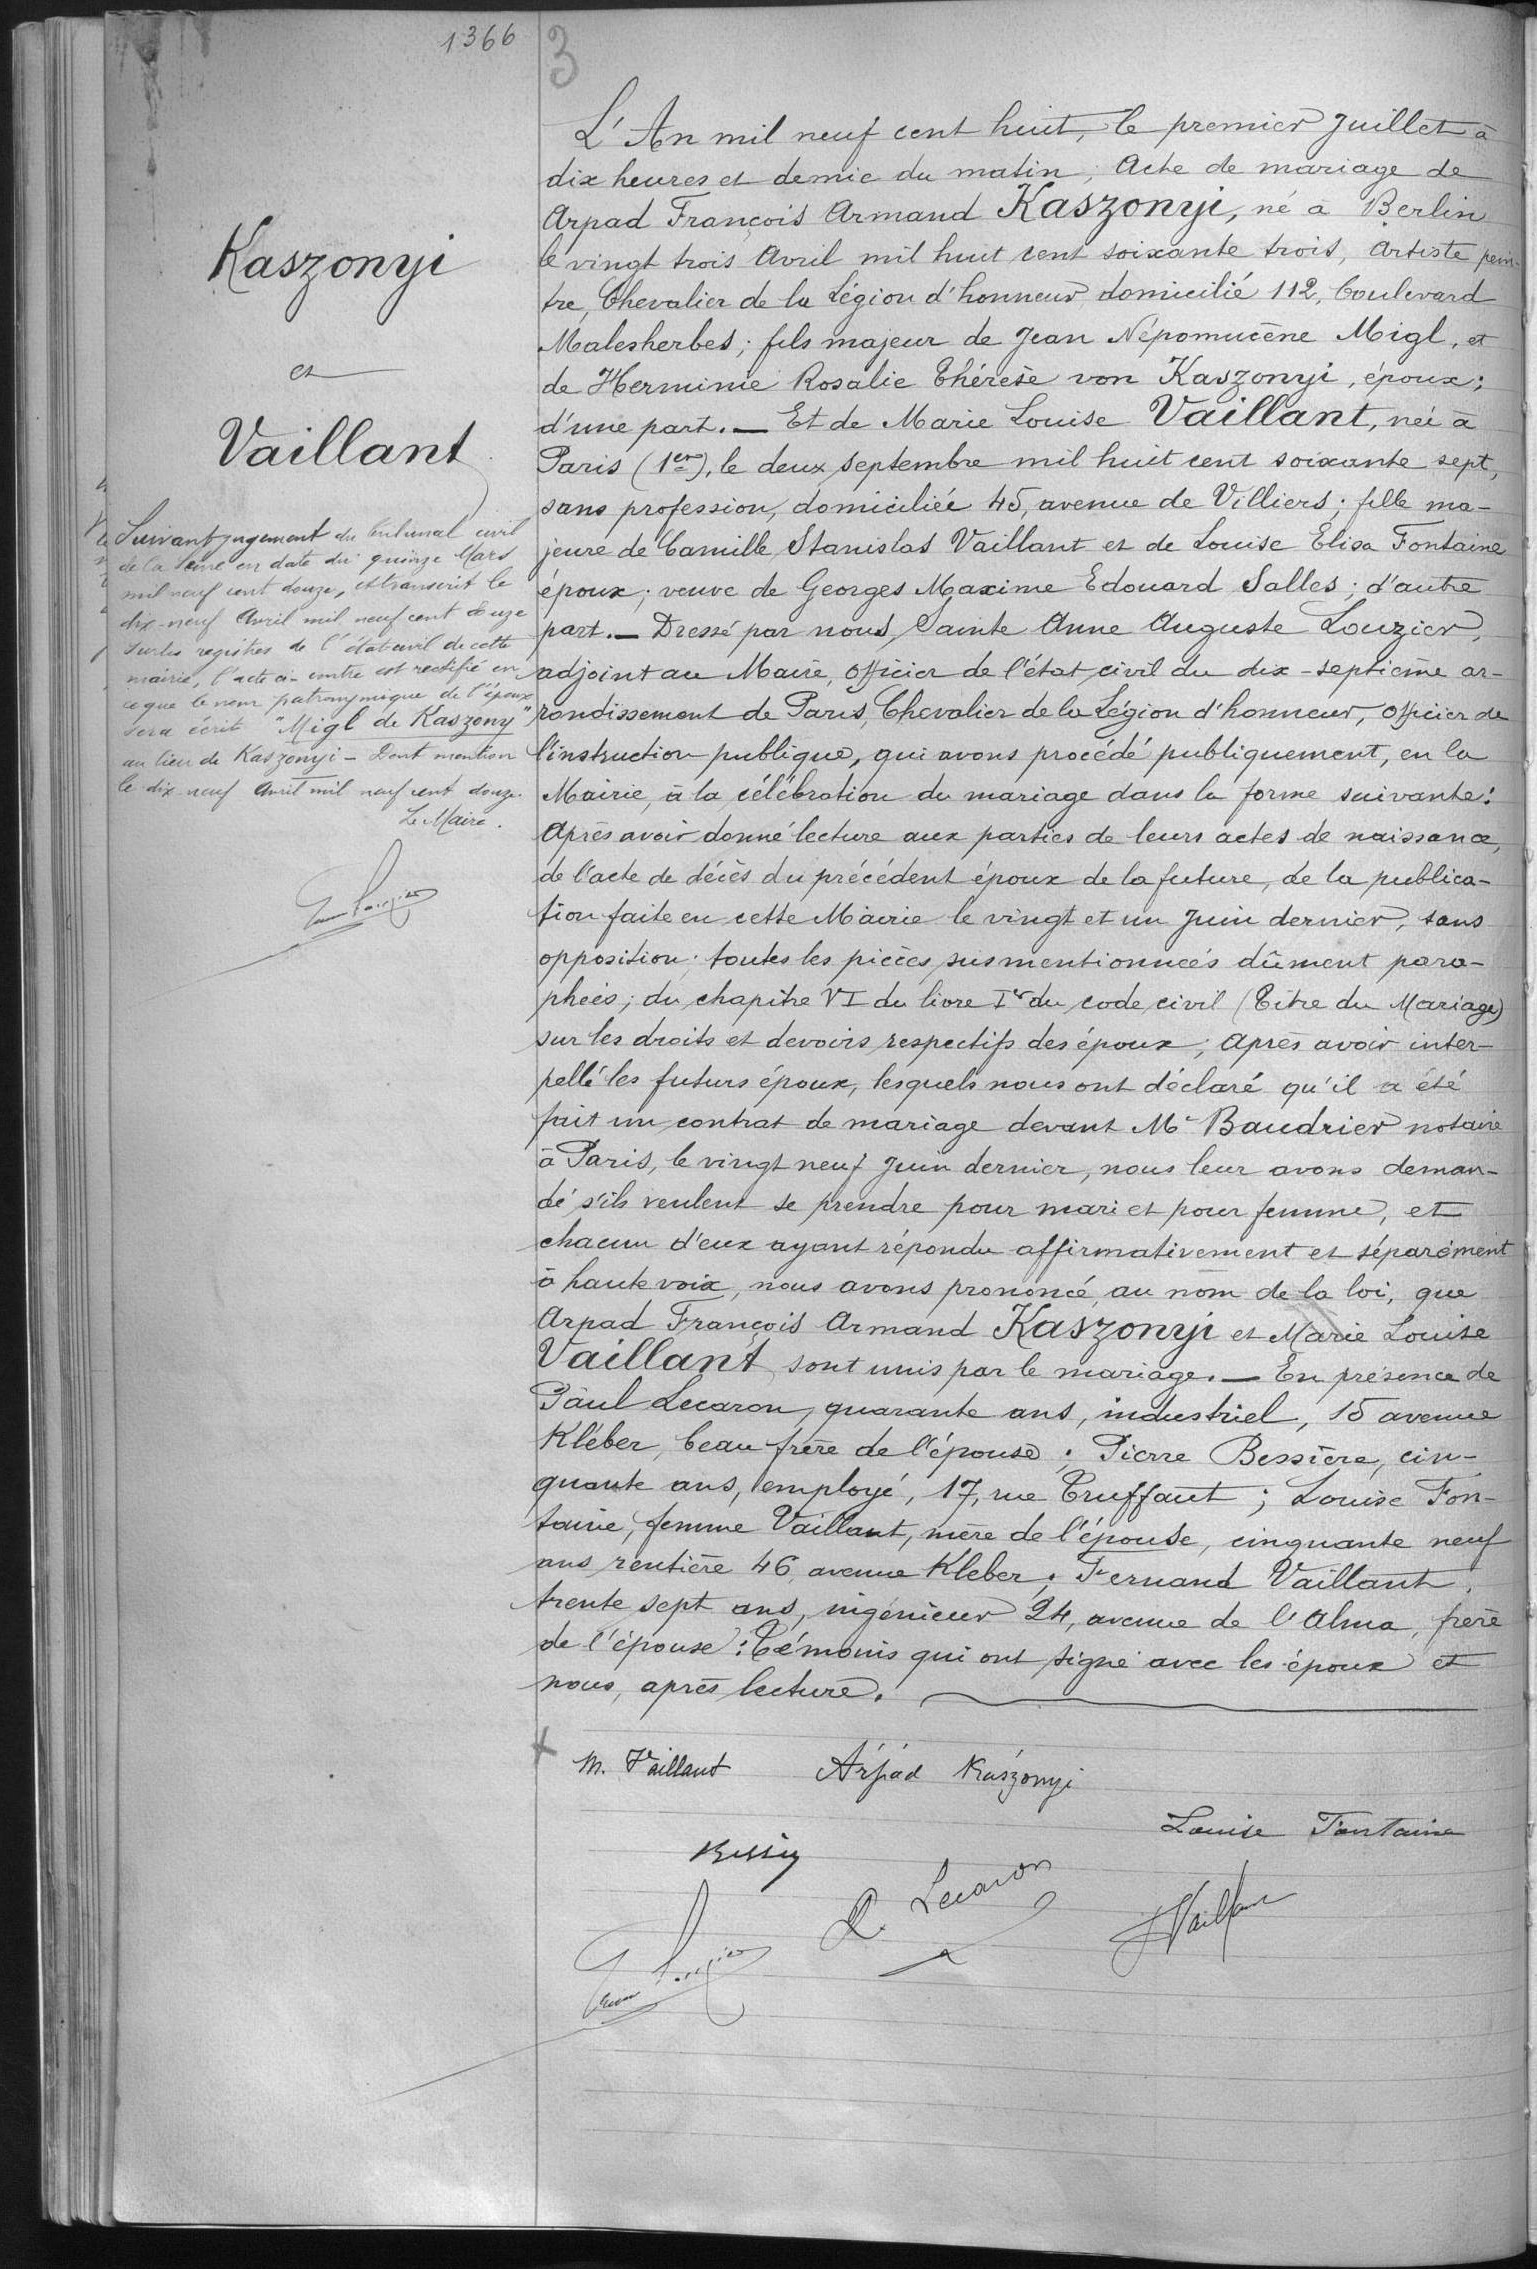 1366
3
Kaszonyi
et
Vaillant
Suivant jugement du tribunal civil
de la Seine en date du quinze Mars
mil neuf cent douze, et transcrit le
dix-neuf Avril mil neuf cent douze
sur les registres de l'état civil de cette
mairie, l'acte ci-contre est rectifié en
ce que le nom patronymique de l'époux
sera écrit "Migl de Kaszony"
au lieu de Kaszonyi - Dont mention
le dix neuf Avril mil neuf cent douze.
Le Maire.
L'An mil neuf cent huit, le premier Juillet à
dix heures et demie du matin; Acte de mariage de
Arpad François Armand Kaszonyi, né à Berlin
le vingt trois Avril mil huit cent soixante trois, Artiste pein-
tre, Chevalier de la Légion d'honneur domicilié 112, boulevard
Malesherbes; fils majeur de Jean Népomucène Migl, et
de Herminie Rosalie Thérèse von Kaszonyi, époux;
d'une part. — Et de Marie Louise Vaillant, née à
Paris (1er), le deux septembre mil huit cent soixante sept,
sans profession, domiciliée 45, avenue de Villiers; fille ma-
jeure de Camille Stanislas Vaillant et de Louise Elisa Fontaine
époux; veuve de Georges Maxime Edouard Salles; d'autre
part. — Dressé par nous, Sainte Anne Auguste Louzier,
adjoint au Maire, officier de l'état civil du dix-septième ar-
rondissement de Paris, Chevalier de la Légion d'honneur, officier de
l'instruction publique, qui avons procédé publiquement, en la
Mairie, à la célébration du mariage dans la forme suivante:
Après avoir donné lecture aux parties de leurs actes de naissance,
de l'acte de décès du précédent époux de la future, de la publica-
tion faite en cette Mairie le vingt et un Juin dernier, sans
opposition; toutes les pièces susmentionnées dûment para-
phées; du chapitre VI du livre Ier du code civil (Titre du Mariage)
sur les droits et devoirs respectifs des époux; Après avoir inter-
pellé les futurs époux, lesquels nous ont déclaré qu'il a été
fait un contrat de mariage devant Me Baudrier notaire
à Paris, le vingt neuf Juin dernier, nous leur avons deman-
dé s'ils veulent se prendre pour mari et pour femme, et
chacun d'eux ayant répondu affirmativement et séparément
à haute voix, nous avons prononcé, au nom de la loi, que
Arpad François Armand Kaszonyi et Marie Louise
Vaillant sont unis par le mariage. — En présence de
Paul Lecaron, quarante ans, industriel, 15 avenue
Kléber, beau frère de l'épouse; Pierre Bessière, cin-
quante ans, employé, 17, rue Truffaut; Louise Fon-
taine, femme Vaillant, mère de l'épouse, cinquante neuf
ans rentière 46, avenue Kleber; Fernand Vaillant,
trente sept ans, ingénieur 24, avenue de l'Alma, frère
de l'épouse: Témoins qui ont signé avec les époux et
nous, après lecture.
M. Vaillant Arpád Kászonyi
Louise Fontaine
P. Lecaron
Vaillant